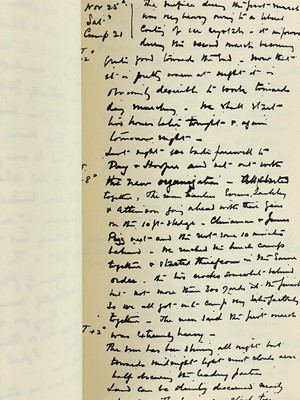 Nov 25th The surface during the first march
Sat. was very heavy owing to a liberal
Camp 21 coating of ice crystals - it improved
during the second march becoming
T -2° quite good towards the end. Now that
it is pretty warm at night it is
obviously desirable to work towards
day marching. We shall start
two hours later tonight & again
tomorrow night -
Last night we bade farewell to
Day & Hooper and set out with
T -8° the new organisation -
together, The man
& Atkinson going ahead with their gear
on the 10ft sledge - Chinaman & James
Pigg next and the rest some 10 minutes
behind - We reached the lunch camp
together & started therefrom in the same
order. the two crocks somewhat behind
but not more than 300 yards at the finish
So we all got into camp very satisfactorily
together - The men said the first march
T +2° was extremely heavy -
The sun has been shining all night but
towards midnight light mist clouds arose
half obscuring the leading parties
Land can be dimly discerned nearly